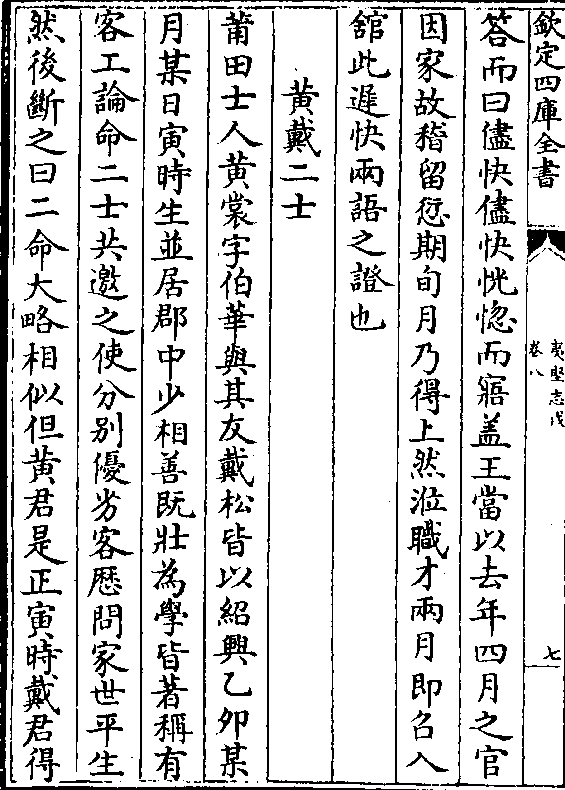 欽定四庫全書
夷堅志戊
卷八
七
答而曰儘快儘快恍惚而寤盖王當以去年四月之官
因家故稽留愆期旬月乃得上然涖職才兩月即召入
舘此遲快兩語之證也
黄戴二士
莆田士人黄裳字伯華與其友戴松皆以紹興乙卯某
月某日寅時生並居郡中少相善既壯為學皆著稱有
客工論命二士共邀之使分别優劣客歴問家世平生
然後斷之曰二命大略相似但黄君是正寅時戴君得